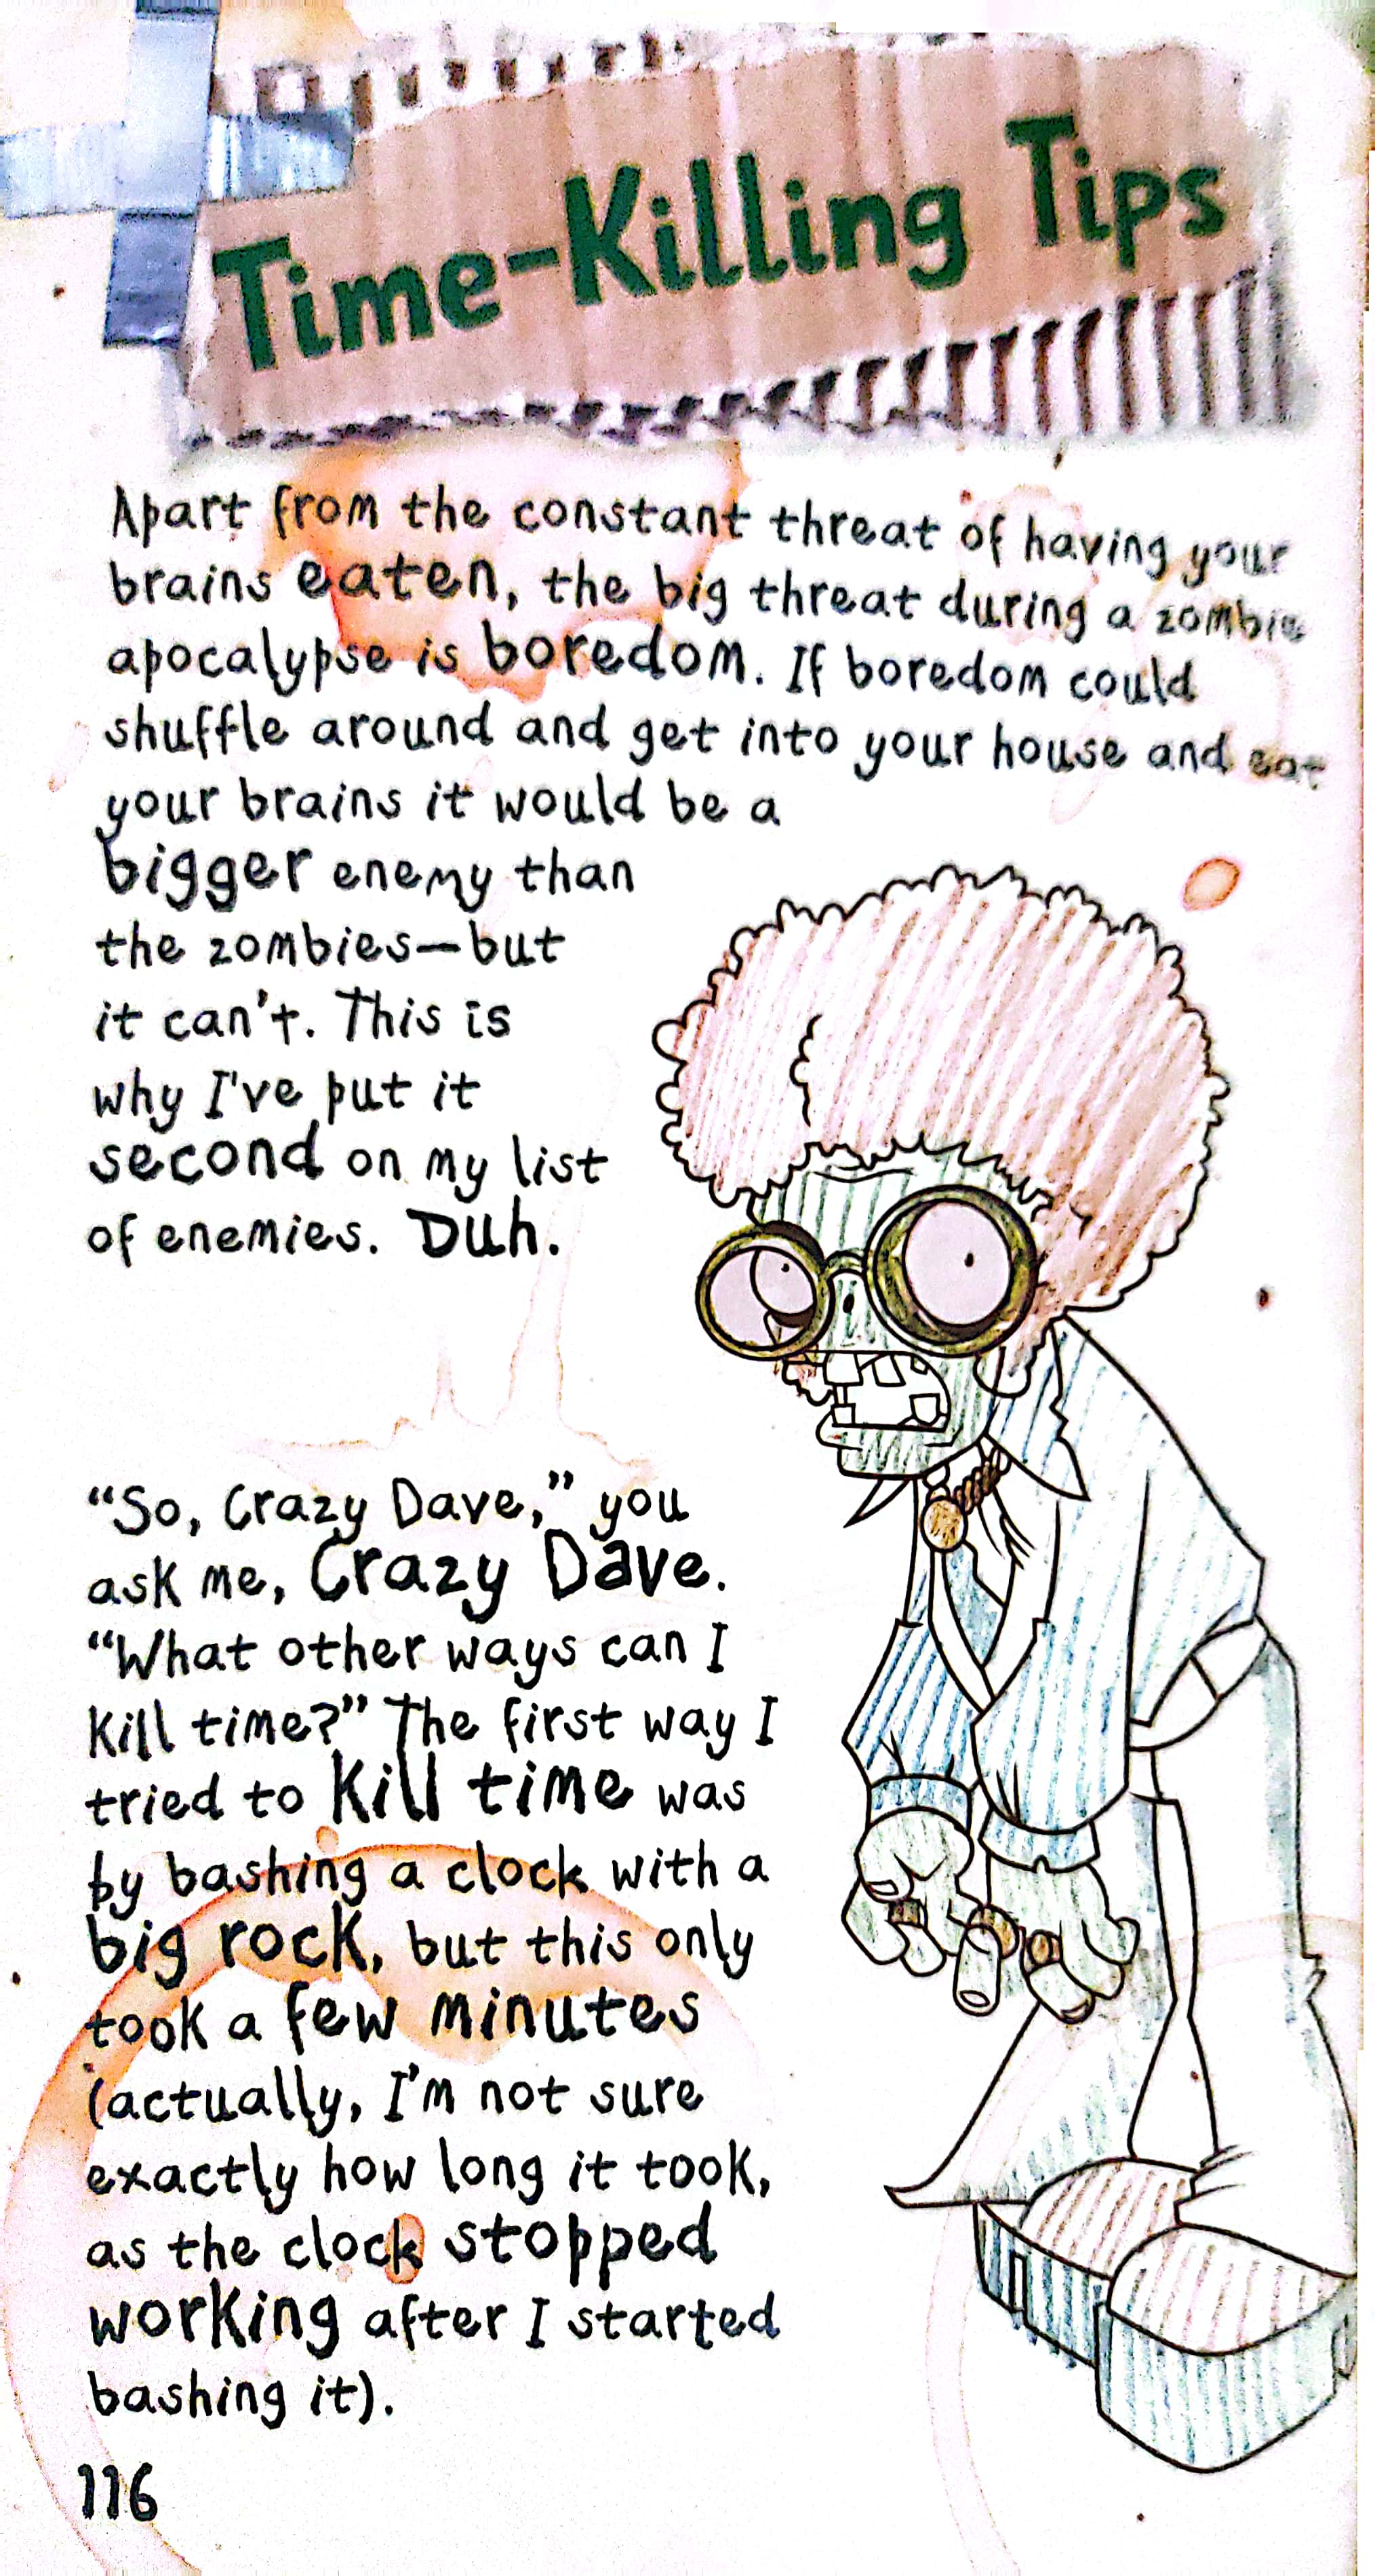 Time-Killing Tips
Apart from the constant threat of having your
brains eaten, the big threat during a zombie
apocalypse is boredom. If boredom could
shuffle around and get into your house and eat
your brains it would be a
bigger enemy than
the zombies—but
it can't. This is
why I've put it
second on my list
of enemies. Duh.
"So, Crazy Dave," you
ask me, Crazy Dave.
"What other ways can I
kill time?" The first way I
tried to kill time was
by bashing a clock with a
big rock, but this only
took a few minutes
(actually, I'm not sure
exactly how long it took,
as the clock stopped
working after I started
bashing it).
116